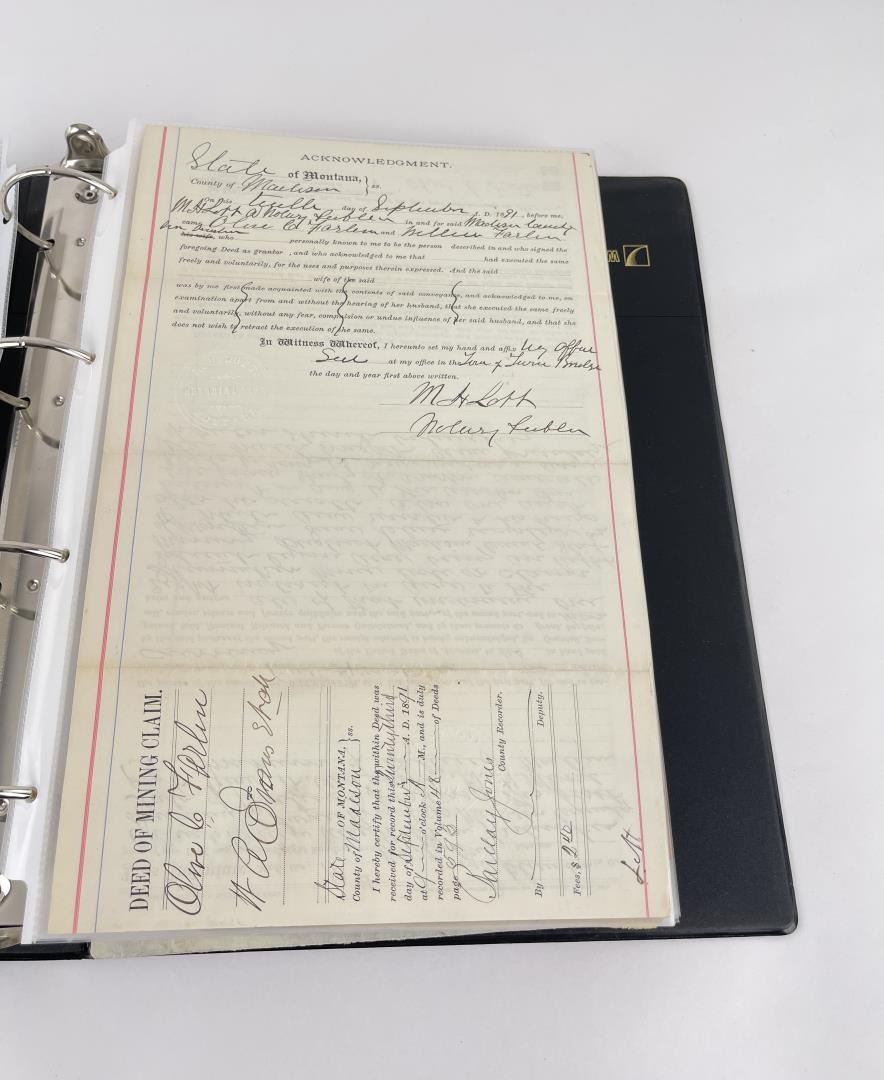 ACKNOWLEDGMENT.
State of Montana,
County of Madison } ss.
On this Twelfth day of September A. D. 1891, before me,
M H Lott a Notary Public in and for said Madison County
came Olive C Farlin and William Farlin
his wife, who personally known to me to be the person described in and who signed the
foregoing Deed as grantor , and who acknowledged to me that had executed the same
freely and voluntarily, for the uses and purposes therein expressed. And the said
wife of the said
was by me first made acquainted with the contents of said conveyance, and acknowledged to me, on
examination apart from and without the hearing of her husband, that she executed the same freely
and voluntarily, without any fear, compulsion or undue influence of her said husband, and that she
does not wish to retract the execution of the same.
In Witness Whereof, I hereunto set my hand and affix my office
Seal at my office in the Town of Twin Bridges
the day and year first above written.
M H Lott
Notary Public
DEED OF MINING CLAIM.
Olive C Farlin
TO
W A Evans et al
State OF MONTANA,
County of Madison } ss.
I hereby certify that the within Deed was
received for record this twenty third
day of September A. D. 1891
at 9 o'clock A M., and is duly
recorded in Volume 48 of Deeds
page
County Recorder.
By Deputy.
Fees, $ 2.40
Lott